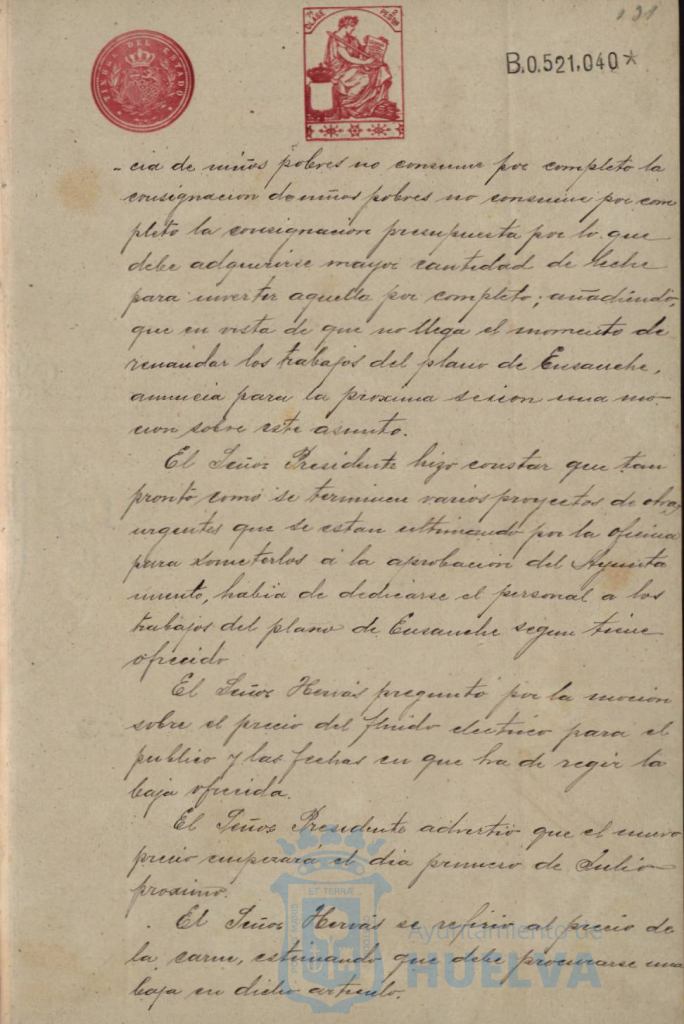 131
TIMBRE DEL ESTADO
CLASE PESETAS
B.0.521.040*
-cia de niños pobres no consume por completo la
consignacion de niños pobres no consume por com
pleto la consignacion presupuesta por lo que
debe adquirirse mayor cantidad de leche
para invertir aquella por completo; añadiendo,
que en vista de que no llega el momento de
reanudar los trabajos del plano de Ensanche,
anuncia para la proxima sesion una mo-
cion sobre este asunto.
El Señor Presidente hizo constar que tan
pronto como se terminen varios proyectos de obras
urgentes que se estan ultimando por la oficina
para someterlos á la aprobacion del Ayunta
miento, habia de dedicarse el personal a los
trabajos del plano de Ensanche segun tiene
ofrecido
El Señor Hervás preguntó por la mocion
sobre el precio del fluido electrico para el
publico y las fechas en que ha de regir la
baja ofrecida.
El Señor Presidente advertió que el nuevo
precio empezará el dia primero de Julio
proximo.
El Señor Hervás se refirió al precio de
la carne, estimando que debe procurarse una
baja en dicho articulo.
Ayuntamiento de
HUELVA